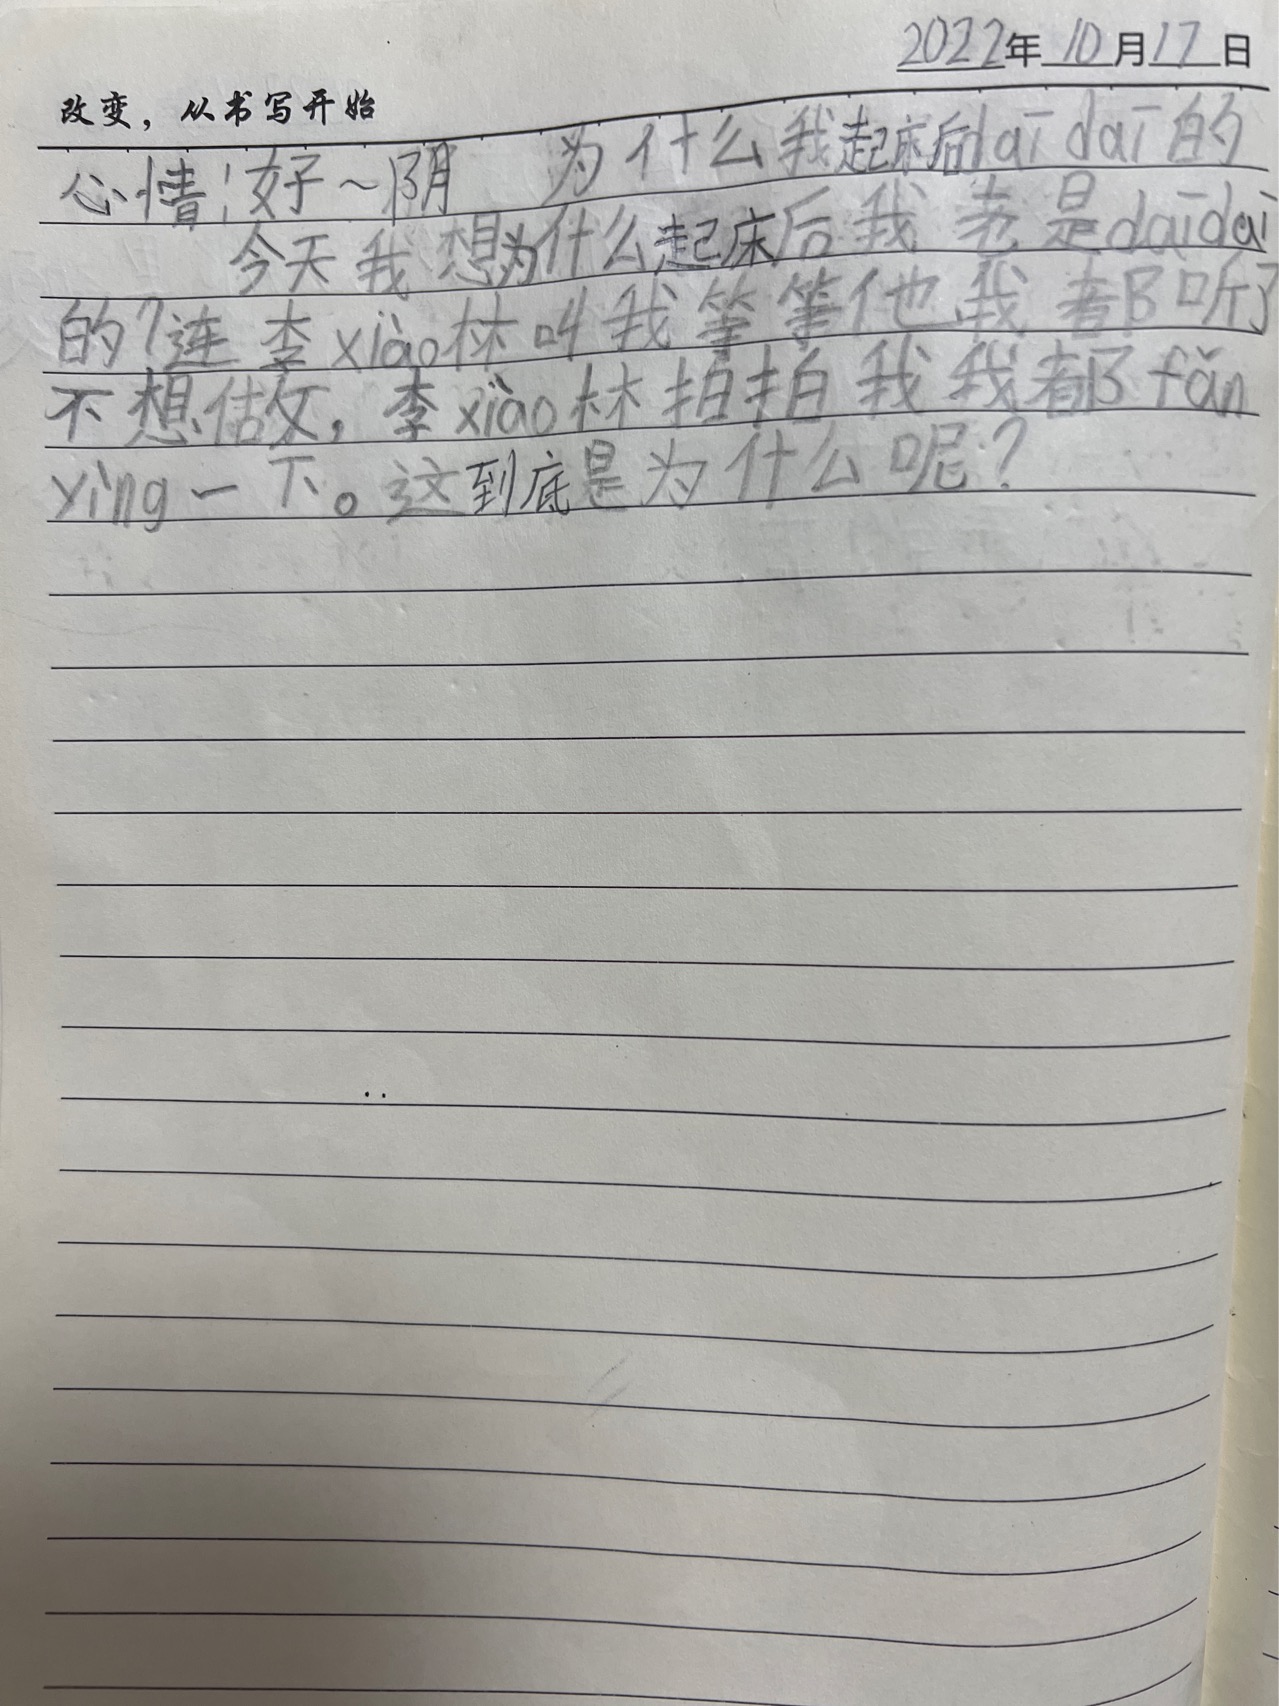 2022年10月17日
改变，从书写开始
心情：好～阴 为什么我起床后daī daī的
今天我想为什么起床后我老是daīdaī
的？连李xiào林叫我等等他我都听了
不想估攵，李xiào林拍拍我我都fǎn
yìng一下。这到底是为什么呢？